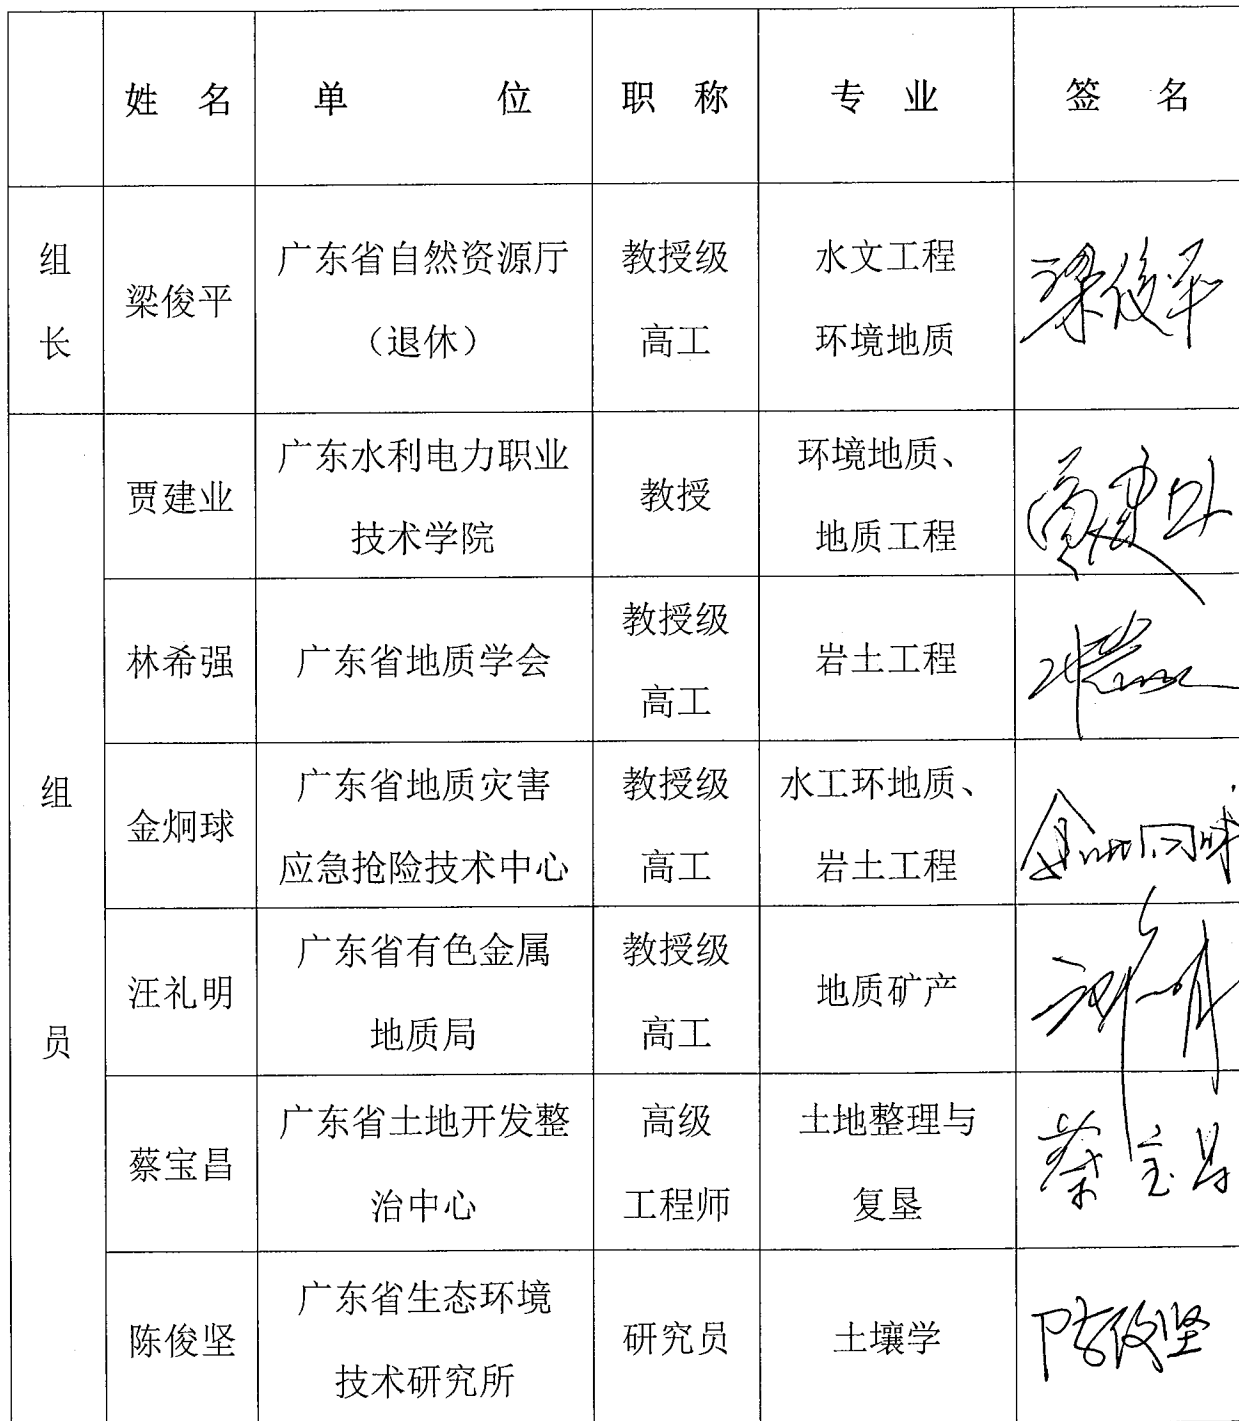 姓 名 单 位 职 称 专 业 签 名
组长 梁俊平 广东省自然资源厅（退休） 教授级高工 水文工程环境地质 梁俊平
组员
贾建业 广东水利电力职业技术学院 教授 环境地质、地质工程 贾建业
林希强 广东省地质学会 教授级高工 岩土工程
金炯球 广东省地质灾害应急抢险技术中心 教授级高工 水工环地质、岩土工程 金炯球
汪礼明 广东省有色金属地质局 教授级高工 地质矿产
蔡宝昌 广东省土地开发整治中心 高级工程师 土地整理与复垦 蔡宝昌
陈俊坚 广东省生态环境技术研究所 研究员 土壤学 陈俊坚